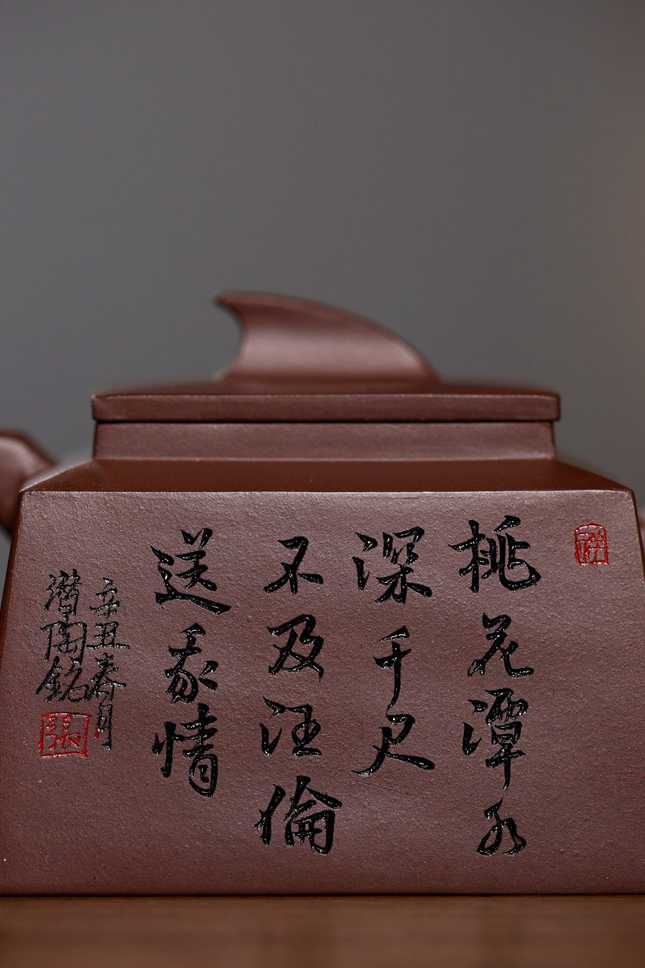 桃花潭水
深千尺
不及汪倫
送我情
辛丑春月
潜陶銘